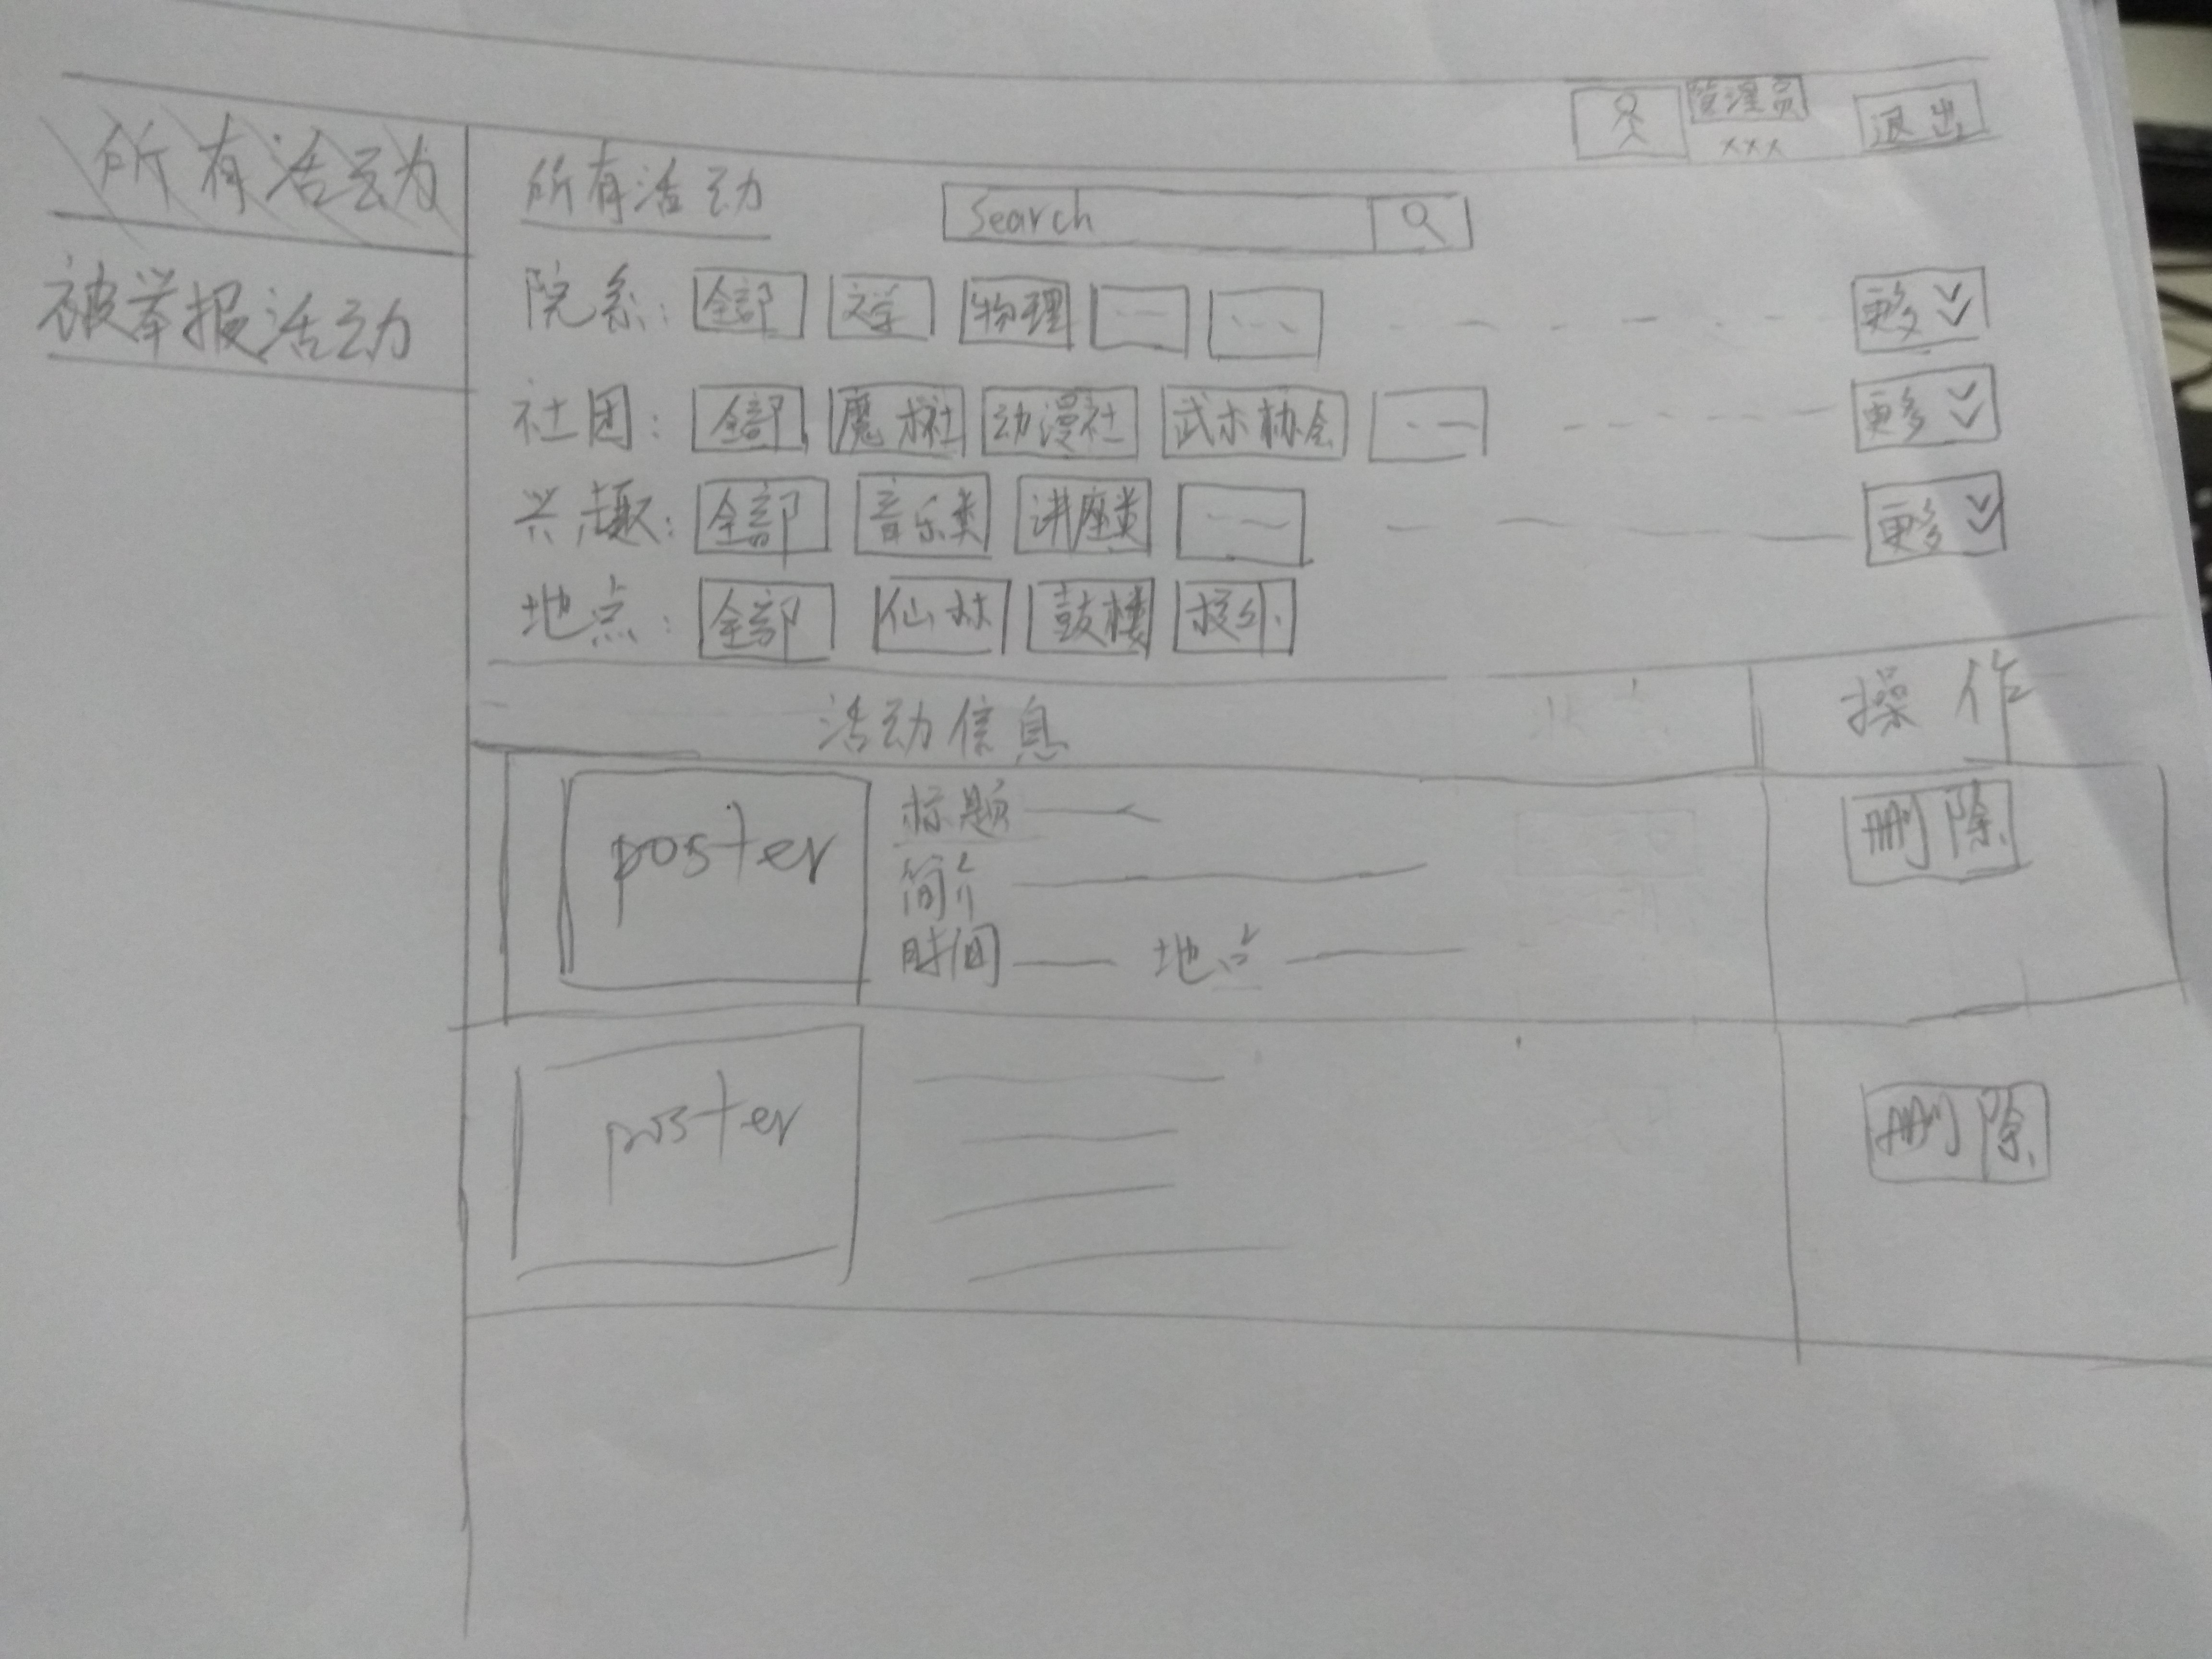 管理员
xxx
退出
所有活动
被举报活动
所有活动
Search
院系： 全部 文学 物理 更多
社团： 全部 魔术社 动漫社 武术协会 更多
兴趣： 全部 音乐类 讲座类 更多
地点： 全部 仙林 鼓楼 校外
活动信息 操作
poster
标题
简介
时间 地点
删除
poster
删除